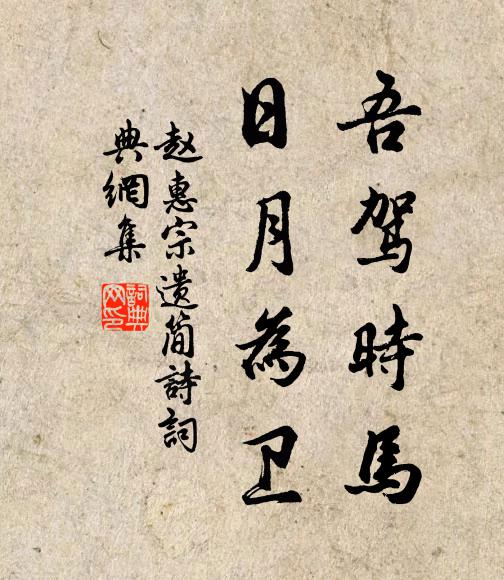 吾驾時馬
日月為卫
赵惠宗遗简詩詞
典網集
詞典
网印